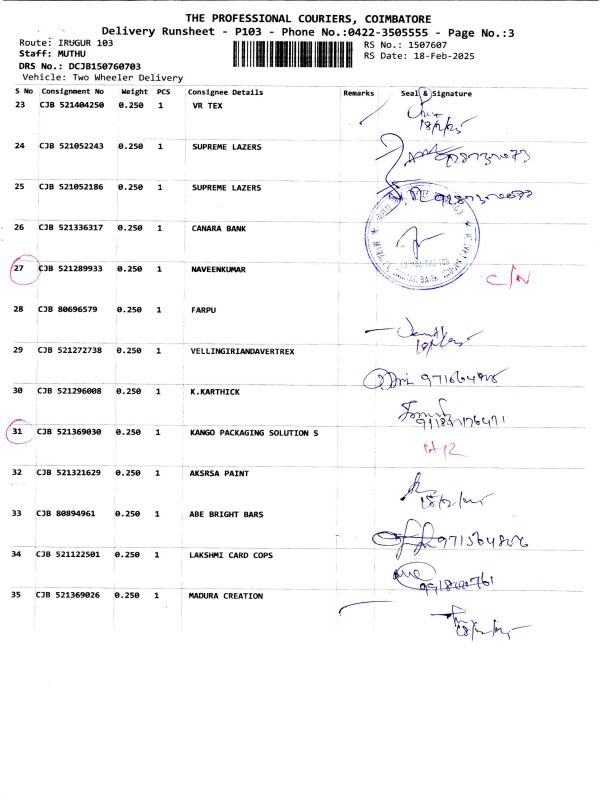 THE PROFESSIONAL COURIERS, COIMBATORE
Delivery Runsheet - P103 - Phone No.:0422-3505555 - Page No.:3
Route: IRUGUR 103 RS No.: 1507607
Staff: MUTHU RS Date: 18-Feb-2025
DRS No.: DCJB150760703
Vehicle: Two Wheeler Delivery
S No Consignment No Weight PCS Consignee Details Remarks Seal & Signature
23 CJB 521404250 0.250 1 VR TEX
24 CJB 521052243 0.250 1 SUPREME LAZERS
25 CJB 521052186 0.250 1 SUPREME LAZERS
26 CJB 521336317 0.250 1 CANARA BANK
27 CJB 521289933 0.250 1 NAVEENKUMAR C/N
28 CJB 80696579 0.250 1 FARPU
29 CJB 521272738 0.250 1 VELLINGIRIANDAVERTREX
30 CJB 521296008 0.250 1 K.KARTHICK
31 CJB 521369030 0.250 1 KANGO PACKAGING SOLUTION S
32 CJB 521321629 0.250 1 AKSRSA PAINT
33 CJB 80894961 0.250 1 ABE BRIGHT BARS
34 CJB 521122501 0.250 1 LAKSHMI CARD COPS
35 CJB 521369026 0.250 1 MADURA CREATION